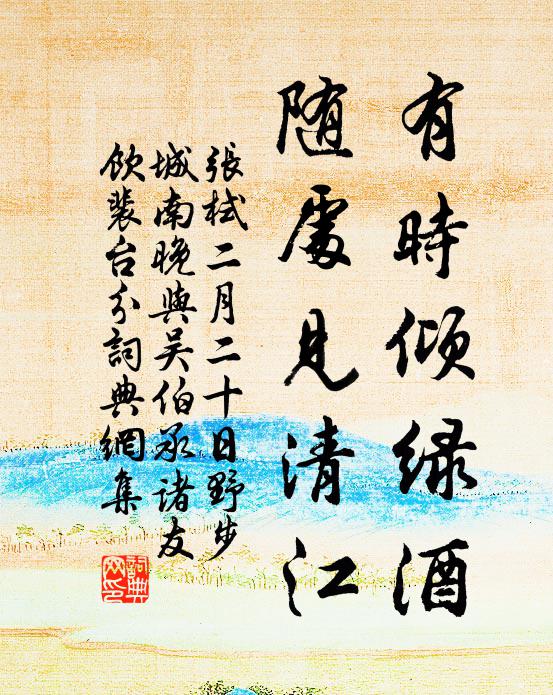 有時傾緑酒
随處見清江
張栻二月二十日野步
城南晚與吴伯承諸友
飲裴台分詞典網集
詞典
网印